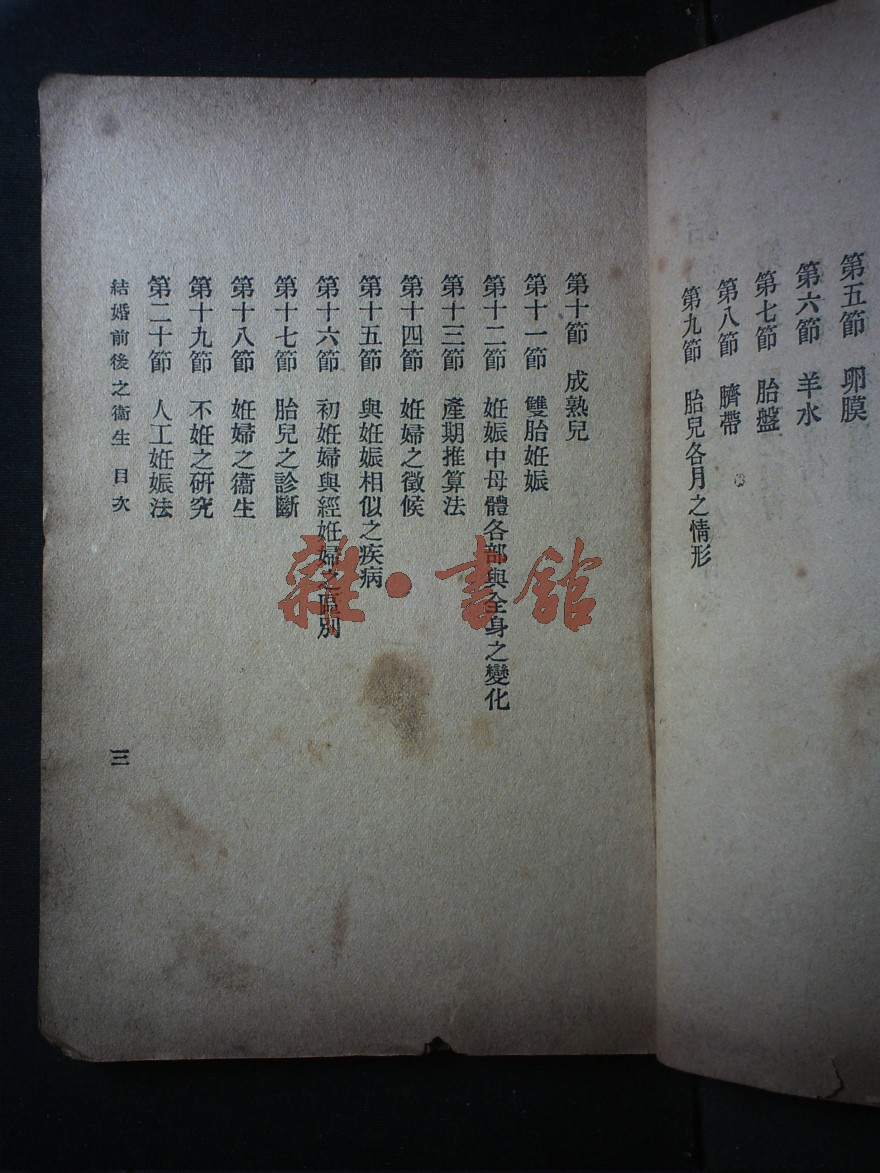 第五節　卵膜
第六節　羊水
第七節　胎盤
第八節　臍帶
第九節　胎兒各月之情形
第十節　成熟兒
第十一節　雙胎妊娠
第十二節　妊娠中母體各部與全身之變化
第十三節　產期推算法
第十四節　妊婦之徵候
第十五節　與妊娠相似之疾病
第十六節　初妊婦與經妊婦之區別
第十七節　胎兒之診斷
第十八節　妊婦之衞生
第十九節　不妊之研究
第二十節　人工妊娠法
結婚前後之衞生　目次
三
雜·書館